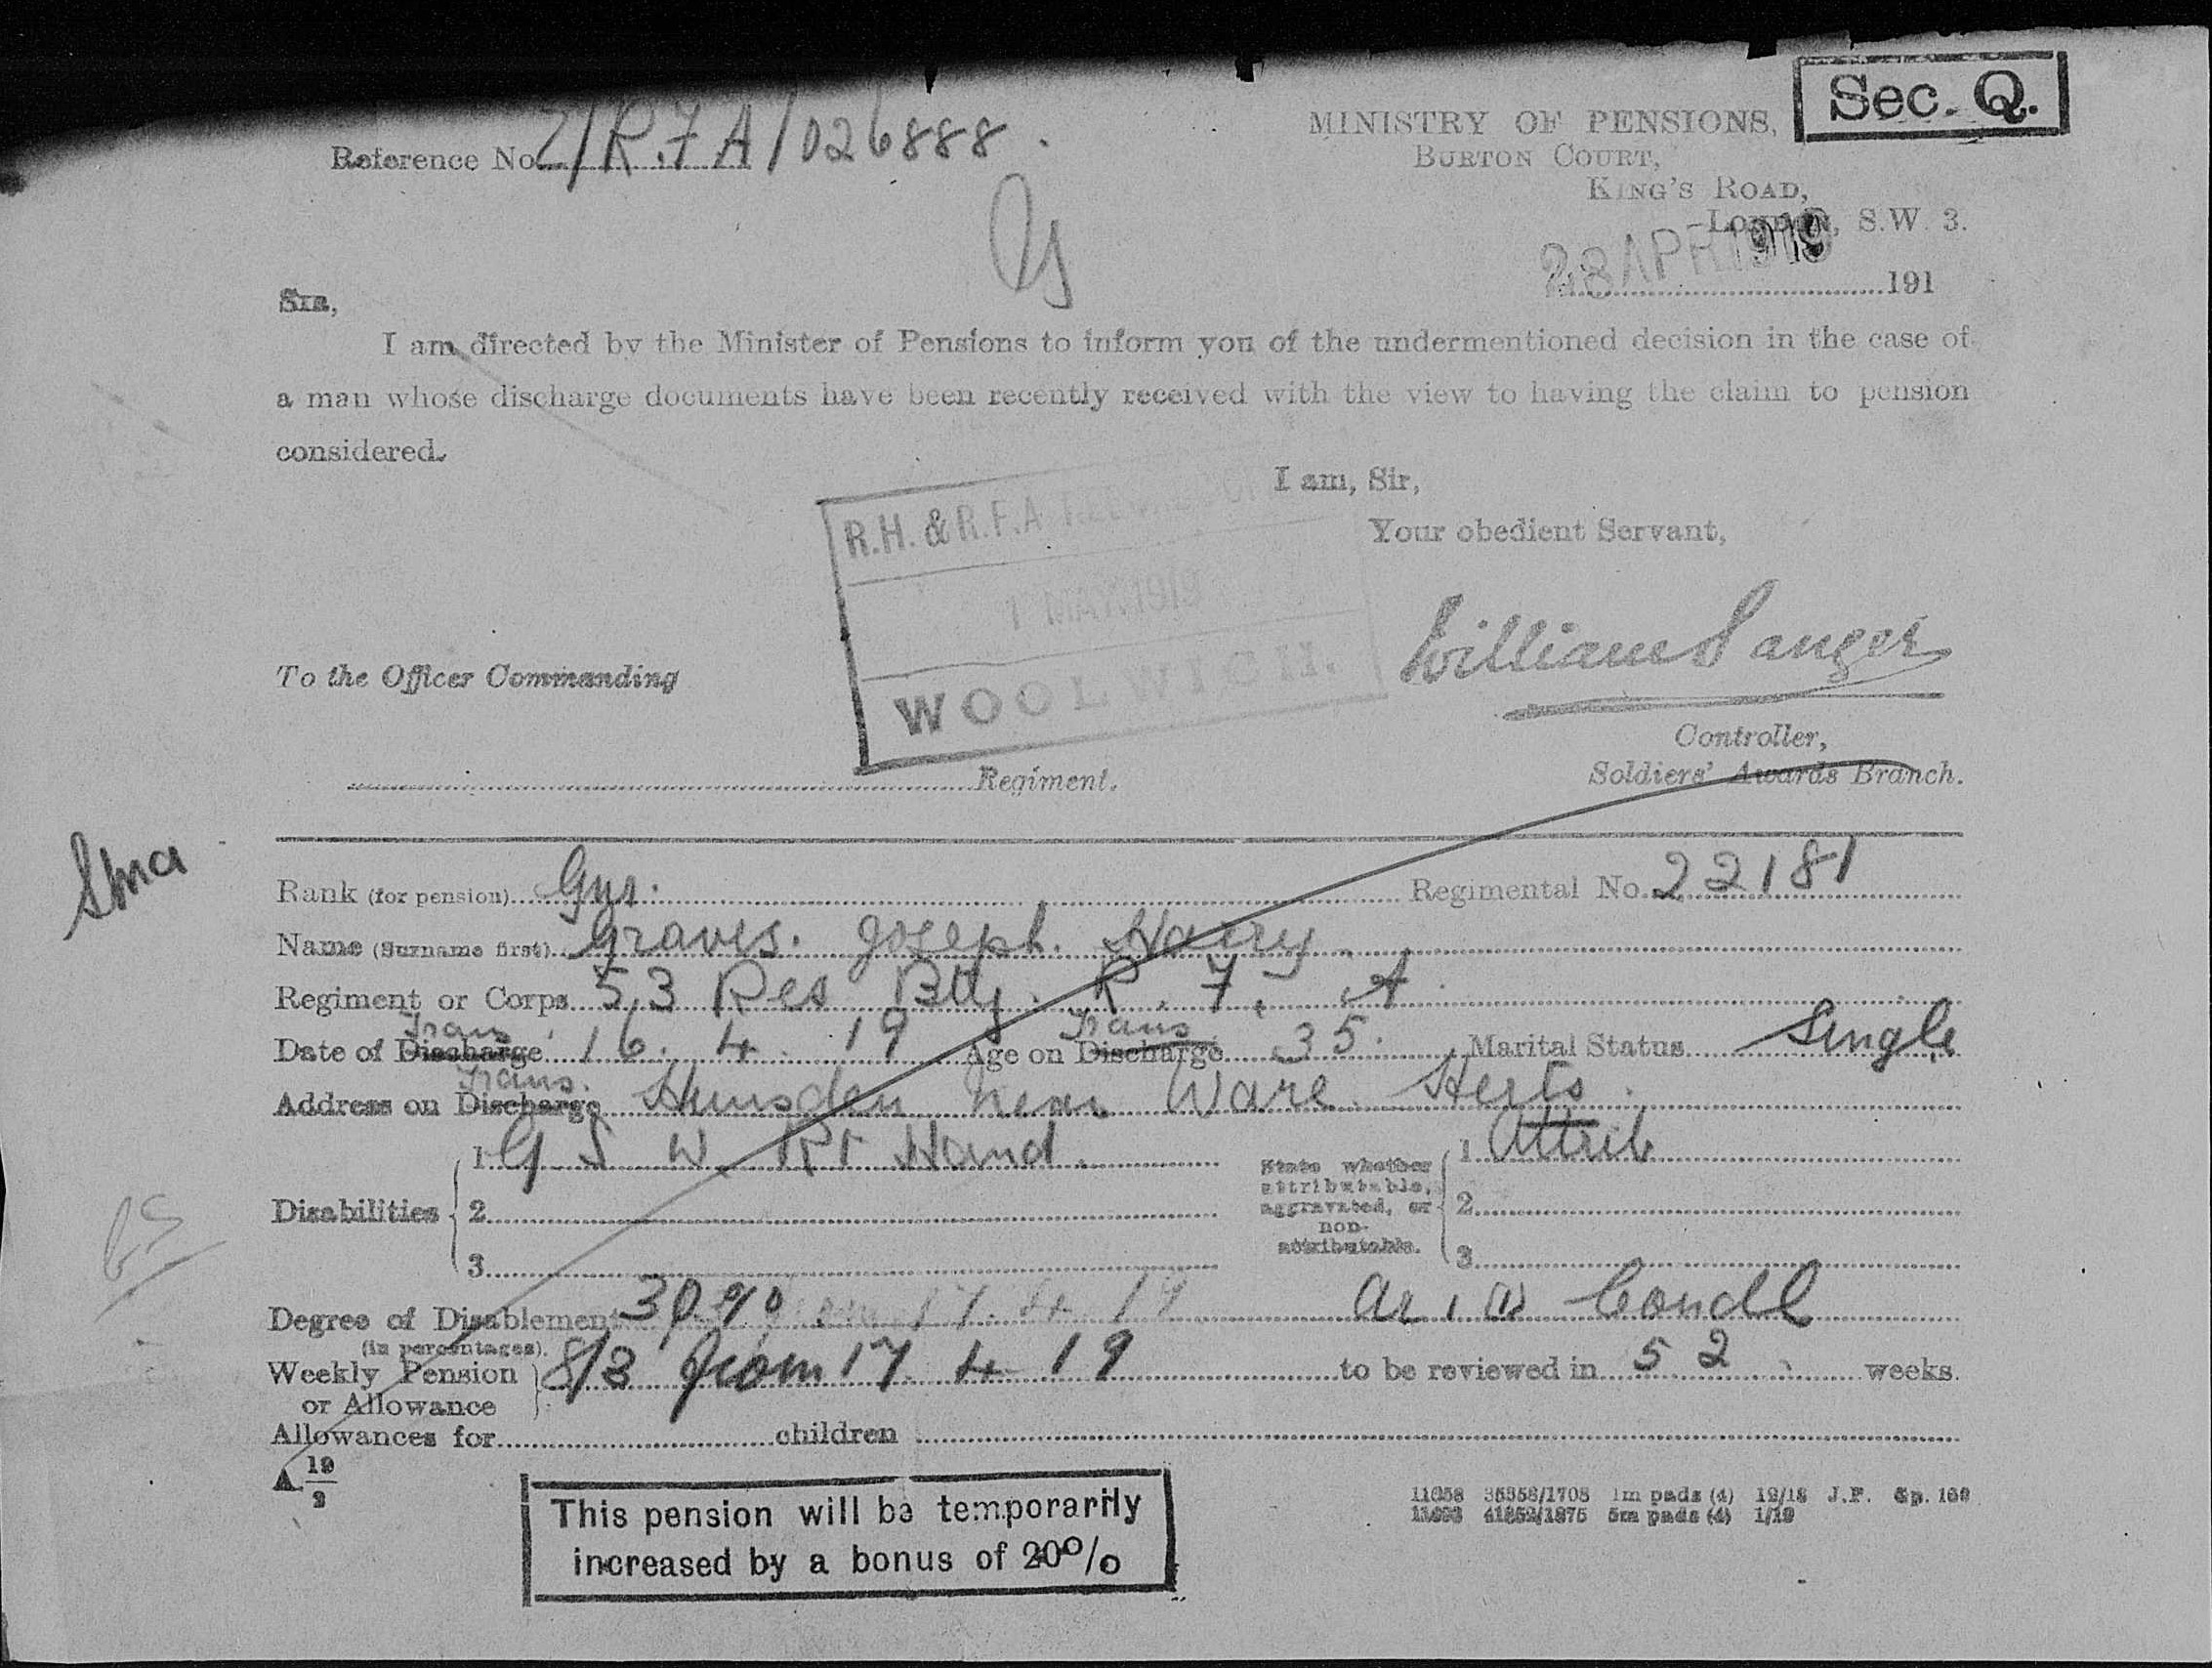 Sec. Q.
MINISTRY OF PENSIONS,
BURTON COURT,
KING'S ROAD,
LONDON, S.W. 3.
Reference No. Z/R.F.A/026888.
28 APR 1919
191
SIR,
I am directed by the Minister of Pensions to inform you of the undermentioned decision in the case of
a man whose discharge documents have been recently received with the view to having the claim to pension
considered.
I am, Sir,
Your obedient Servant,
R.H. & R.F.A.
1 MAY 1919
WOOLWICH.
William Sanger
To the Officer Commanding
Controller,
Soldiers' Awards Branch.
Regiment.
Rank (for pension) Gnr. Regimental No. 22181
Name (Surname first) Graves. Joseph. Harry
Regiment or Corps 53 Res Bty. R. F. A
Date of Discharge Trans 16. 4. 19 Age on Discharge Trans 35. Marital Status Single
Address on Discharge Trans. Hunsden near Ware Herts.
Disabilities
1 G S W Rt Hand
2
3
State whether attributable, aggravated, or non-attributable.
1 Attrib
2
3
Degree of Disablement 30% 17. 4. 19
(in percentages).
Weekly Pension or Allowance 8/3 from 17 4 19 to be reviewed in 52 weeks.
Allowances for children
A 19/2
This pension will be temporarily
increased by a bonus of 20%
11658 35358/1708 1m pads (4) 12/18 J.P. Gp. 160
5m pads (4) 1/19